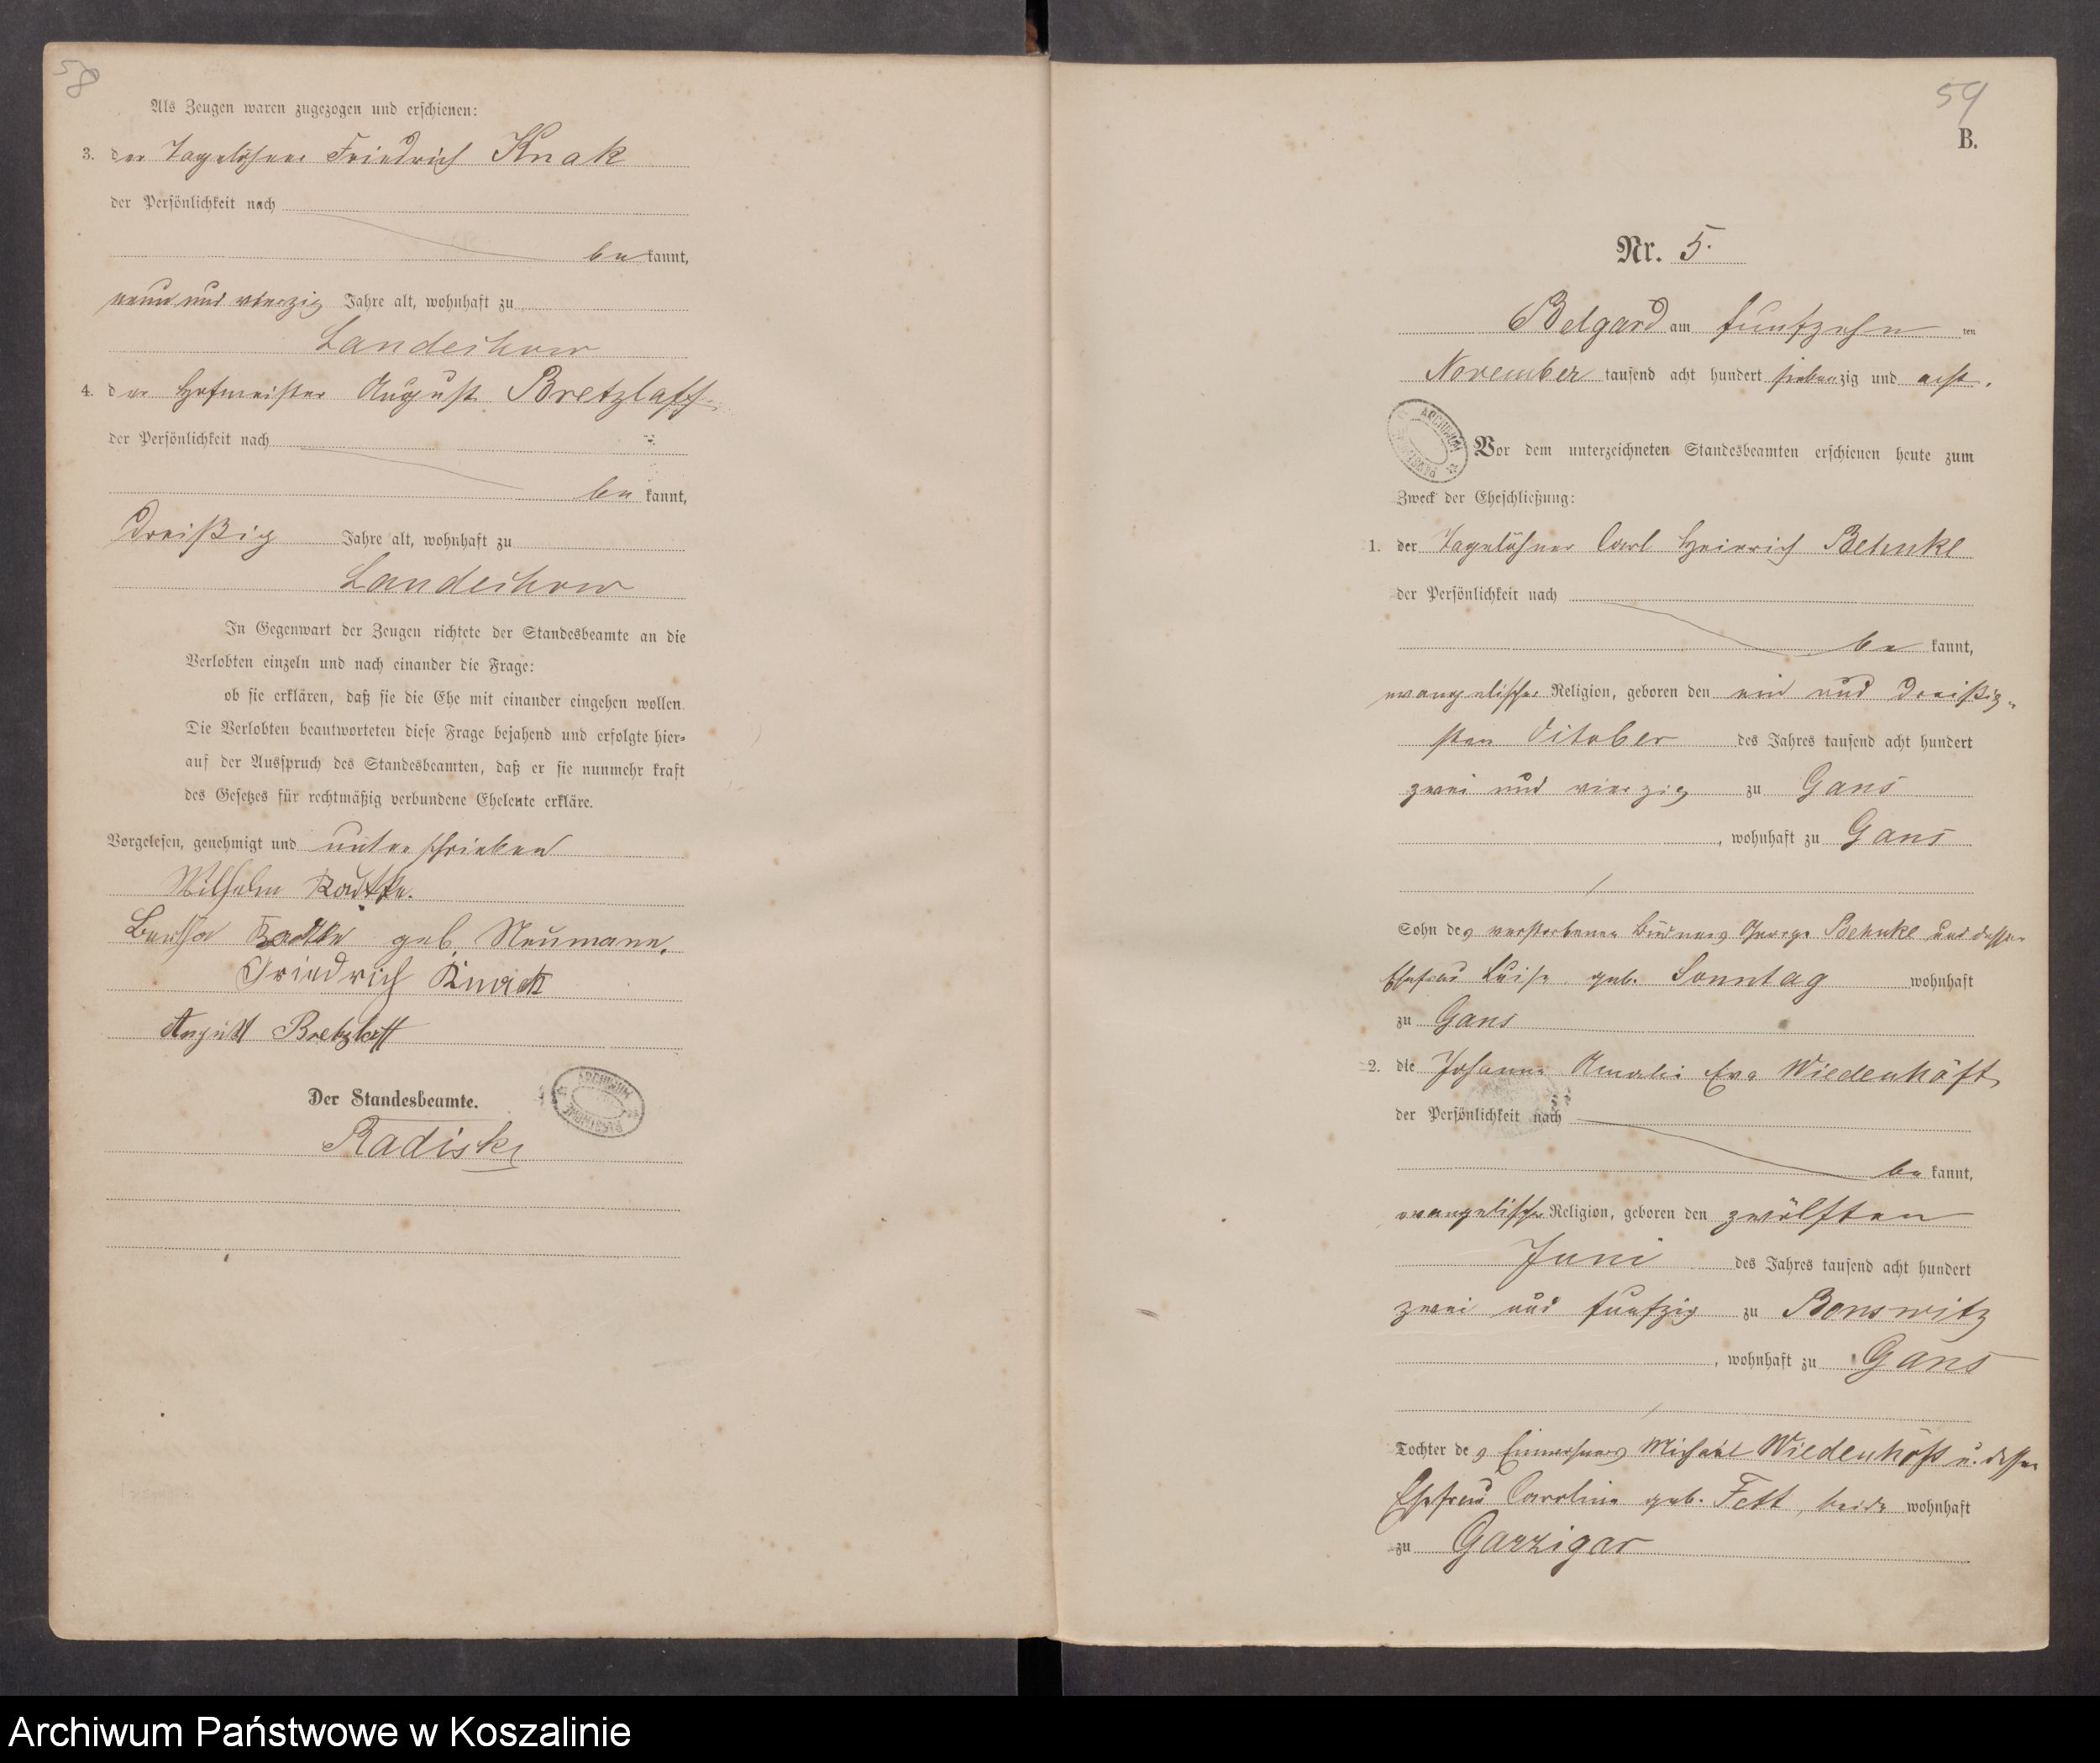 58
Als Zeugen waren zugezogen und erschienen:
3. der Tagelöhner Friedrich Knak
der Persönlichkeit nach
be kannt,
neun und vierzig Jahre alt, wohnhaft zu
Landechow
4. der Hofmeister August Bretzlaff
der Persönlichkeit nach
be kannt,
dreißig Jahre alt, wohnhaft zu
Landechow
In Gegenwart der Zeugen richtete der Standesbeamte an die
Verlobten einzeln und nach einander die Frage:
ob sie erklären, daß sie die Ehe mit einander eingehen wollen.
Die Verlobten beantworteten diese Frage bejahend und erfolgte hier-
auf der Ausspruch des Standesbeamten, daß er sie nunmehr kraft
des Gesetzes für rechtmäßig verbundene Eheleute erkläre.
Vorgelesen, genehmigt und unterschrieben
Wilhelm Radtke.
Bertha Radtke geb. Neumann.
Friedrich Knack
August Bretzlaff
Der Standesbeamte.
ARCHIWUM
Radiske
59
B.
Nr. 5.
Belgard am funfzehn ten
November tausend acht hundert siebenzig und acht.
ARCHIWUM
Vor dem unterzeichneten Standesbeamten erschienen heute zum
Zweck der Eheschließung:
1. der Tagelöhner Carl Heinrich Behnke
der Persönlichkeit nach
be kannt,
evangelischer Religion, geboren den ein und dreißig-
sten October des Jahres tausend acht hundert
zwei und vierzig zu Gans
, wohnhaft zu Gans
Sohn des verstorbenen Büdners George Behnke und dessen
Ehefrau Luise, geb. Sonntag wohnhaft
zu Gans
2. die Johanne Amalie Eva Wiedenhöft
der Persönlichkeit nach
be kannt,
evangelischer Religion, geboren den zwölften
Juni des Jahres tausend acht hundert
zwei und funfzig zu Bonswitz
, wohnhaft zu Gans
Tochter des Einwohners Michael Wiedenhöft u. dessen
Ehefrau Caroline geb. Fett, beide wohnhaft
zu Garzigar
Archiwum Państwowe w Koszalinie